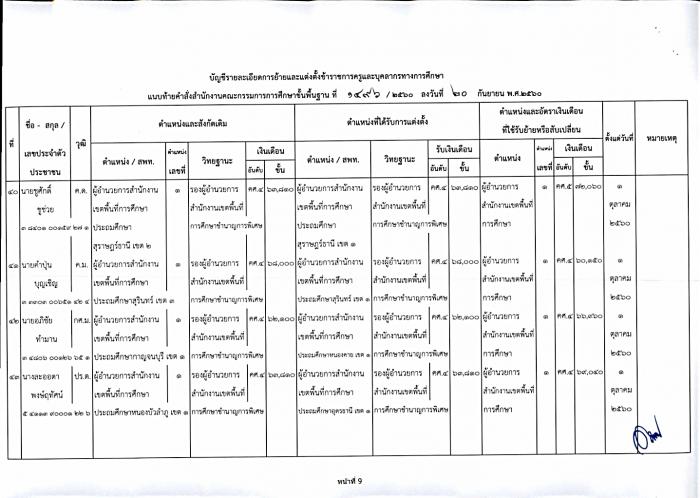 บัญชีรายละเอียดการย้ายและแต่งตั้งข้าราชการครูและบุคลากรทางการศึกษา
แนบท้ายคำสั่งสำนักงานคณะกรรมการการศึกษาขั้นพื้นฐาน ที่ ๑๔๙๖ / ๒๕๖๐ ลงวันที่ ๒๐ กันยายน พ.ศ.๒๕๖๐
ที่ ชื่อ - สกุล / เลขประจำตัว ประชาชน วุฒิ ตำแหน่งและสังกัดเดิม ตำแหน่งที่ได้รับการแต่งตั้ง ตำแหน่งและอัตราเงินเดือน ที่ใช้รับย้ายหรือสับเปลี่ยน ตั้งแต่วันที่ หมายเหตุ
ตำแหน่ง / สพท. ตำแหน่ง เลขที่ วิทยฐานะ เงินเดือน อันดับ ขั้น ตำแหน่ง / สพท. วิทยฐานะ รับเงินเดือน อันดับ ขั้น ตำแหน่ง ตำแหน่ง เลขที่ เงินเดือน อันดับ ขั้น
๔๐ นายชูศักดิ์ ค.ด. ผู้อำนวยการสำนักงาน ๑ รองผู้อำนวยการ คศ.๔ ๖๓,๘๑๐ ผู้อำนวยการสำนักงาน รองผู้อำนวยการ คศ.๔ ๖๓,๘๑๐ ผู้อำนวยการสำนักงาน ๑ คศ.๕ ๗๒,๐๖๐ ๑
ชูช่วย เขตพื้นที่การศึกษา สำนักงานเขตพื้นที่ เขตพื้นที่การศึกษา สำนักงานเขตพื้นที่ เขตพื้นที่ ตุลาคม
ประถมศึกษา การศึกษาชำนาญการพิเศษ ประถมศึกษา การศึกษาชำนาญการพิเศษ การศึกษา ๒๕๖๐
สุราษฎร์ธานี เขต ๒ สุราษฎร์ธานี เขต ๑
๔๑ นายคำปุ่น ค.ม. ผู้อำนวยการสำนักงาน ๑ รองผู้อำนวยการ คศ.๔ ๖๘,๐๐๐ ผู้อำนวยการสำนักงาน รองผู้อำนวยการ คศ.๔ ๖๘,๐๐๐ ผู้อำนวยการสำนักงาน ๑ คศ.๔ ๖๐,๑๕๐ ๑
บุญเชิญ เขตพื้นที่การศึกษา สำนักงานเขตพื้นที่ เขตพื้นที่การศึกษา สำนักงานเขตพื้นที่ สำนักงานเขตพื้นที่ ตุลาคม
ประถมศึกษาสุรินทร์ เขต ๓ การศึกษาชำนาญการพิเศษ ประถมศึกษาสุรินทร์ เขต ๑ การศึกษาชำนาญการพิเศษ การศึกษา ๒๕๖๐
๔๒ นายอภิชัย กศ.ม. ผู้อำนวยการสำนักงาน ๑ รองผู้อำนวยการ คศ.๔ ๖๒,๑๐๐ ผู้อำนวยการสำนักงาน รองผู้อำนวยการ คศ.๔ ๖๒,๑๐๐ ผู้อำนวยการ ๑ คศ.๔ ๖๖,๙๖๐ ๑
ทำมาน เขตพื้นที่การศึกษา สำนักงานเขตพื้นที่ เขตพื้นที่การศึกษา สำนักงานเขตพื้นที่ สำนักงานเขตพื้นที่ ตุลาคม
ประถมศึกษากาญจนบุรี เขต ๑ การศึกษาชำนาญการพิเศษ ประถมศึกษาหนองคาย เขต ๑ การศึกษาชำนาญการพิเศษ การศึกษา ๒๕๖๐
๔๓ นางละออตา ปร.ด. ผู้อำนวยการสำนักงาน ๑ รองผู้อำนวยการ คศ.๔ ๖๓,๘๑๐ ผู้อำนวยการสำนักงาน รองผู้อำนวยการ คศ.๔ ๖๓,๘๑๐ ผู้อำนวยการ ๑ คศ.๔ ๖๙,๐๔๐ ๑
พงษ์ฤทัศน์ เขตพื้นที่การศึกษา สำนักงานเขตพื้นที่ เขตพื้นที่การศึกษา สำนักงานเขตพื้นที่ สำนักงานเขตพื้นที่ ตุลาคม
ประถมศึกษาหนองบัวลำภู เขต ๑ การศึกษาชำนาญการพิเศษ ประถมศึกษาอุดรธานี เขต ๑ การศึกษาชำนาญการพิเศษ การศึกษา ๒๕๖๐
หน้าที่ 9